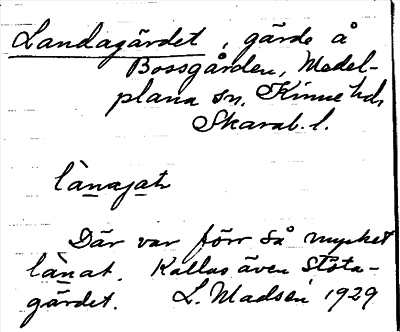 Landagärdet, gärde å
Bossgården, Medel-
plana sn, Kinne hd,
Skarab. l.
lànajat
Där var förr så mycket
lànat. Kallas även Stöta-
gärdet. L. Madsén 1929